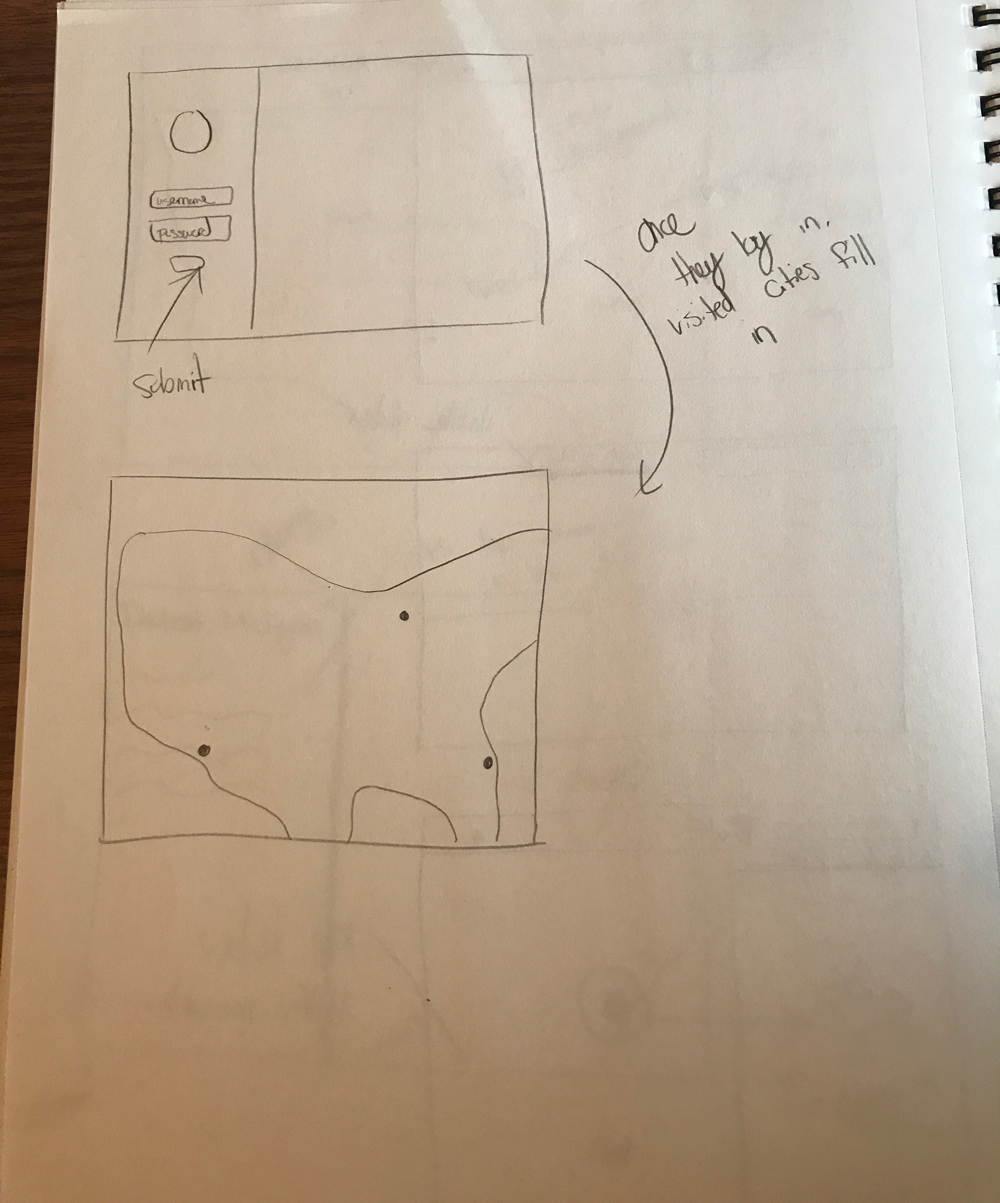 username
password
submit
Once
they log in.
visited cities fill
in